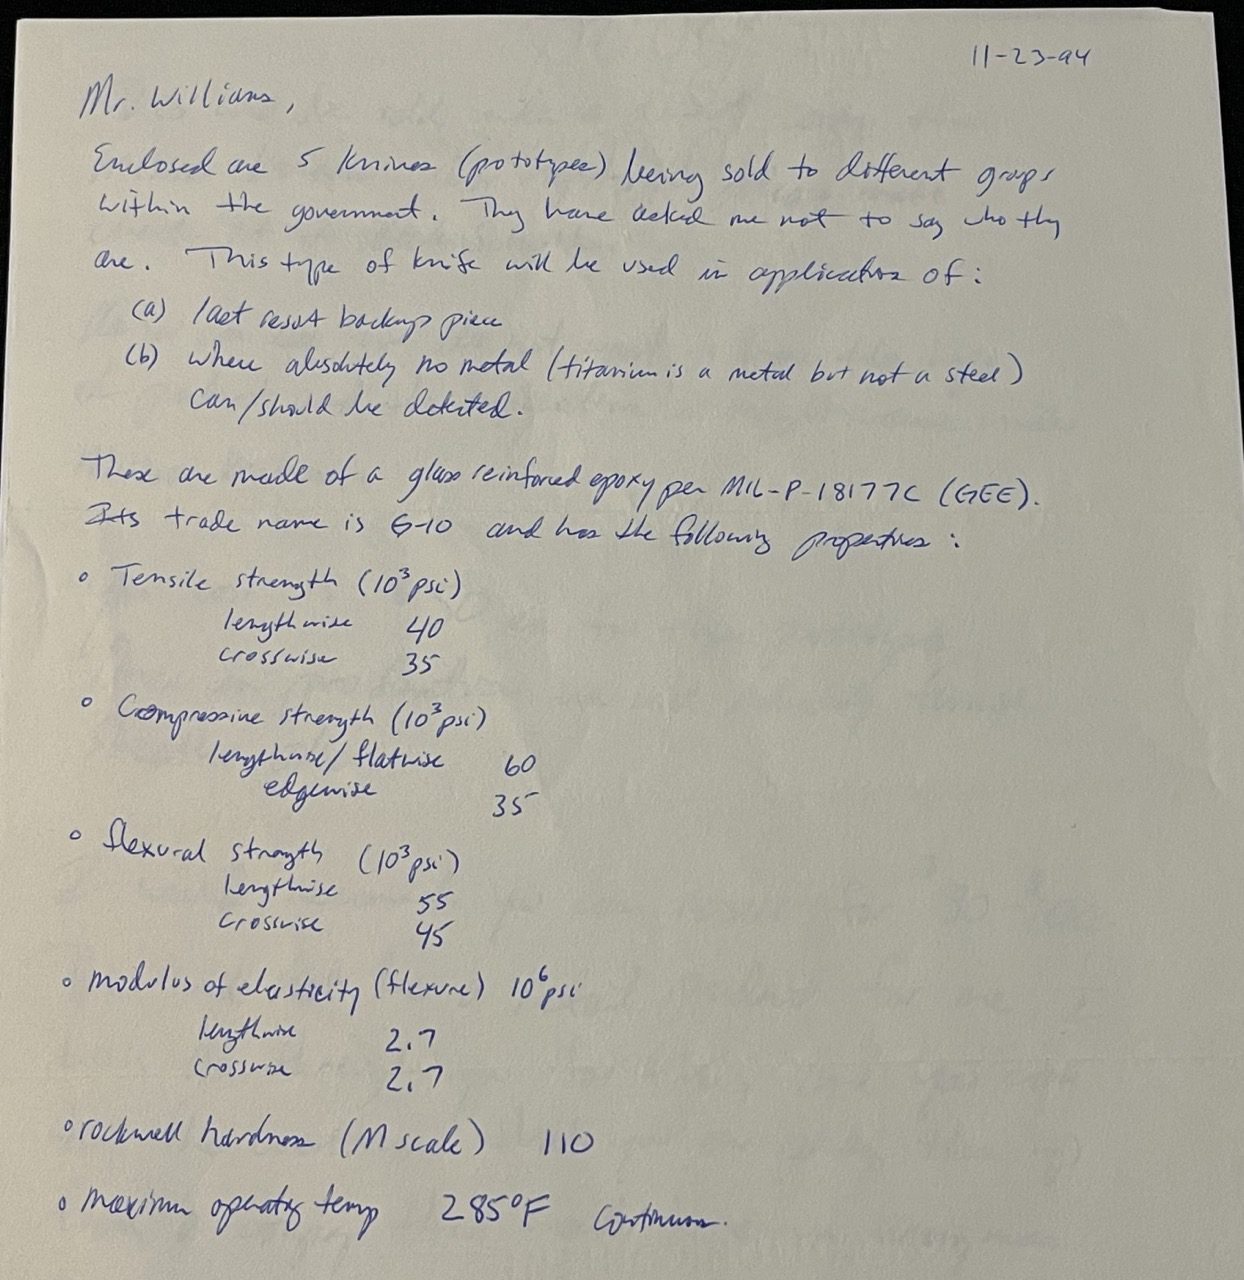 11-23-94
Mr. Williams,
Enclosed are 5 knives (prototypes) being sold to different groups
within the government. They have asked me not to say who they
are. This type of knife will be used in applications of:
(a) last resort backup piece
(b) where absolutely no metal (titanium is a metal but not a steel)
can/should be detected.
These are made of a glass reinforced epoxy per MIL-P-18177C (GEE).
Its trade name is G-10 and has the following properties:
° Tensile strength (10³ psi)
lengthwise 40
crosswise 35
° Compressive strength (10³ psi)
lengthwise/flatwise 60
edgewise 35
° flexural strength (10³ psi)
lengthwise 55
crosswise 45
° modulus of elasticity (flexure) 10⁶ psi
lengthwise 2.7
crosswise 2.7
° rockwell hardness (M scale) 110
° maximum operating temp 285°F continuous.